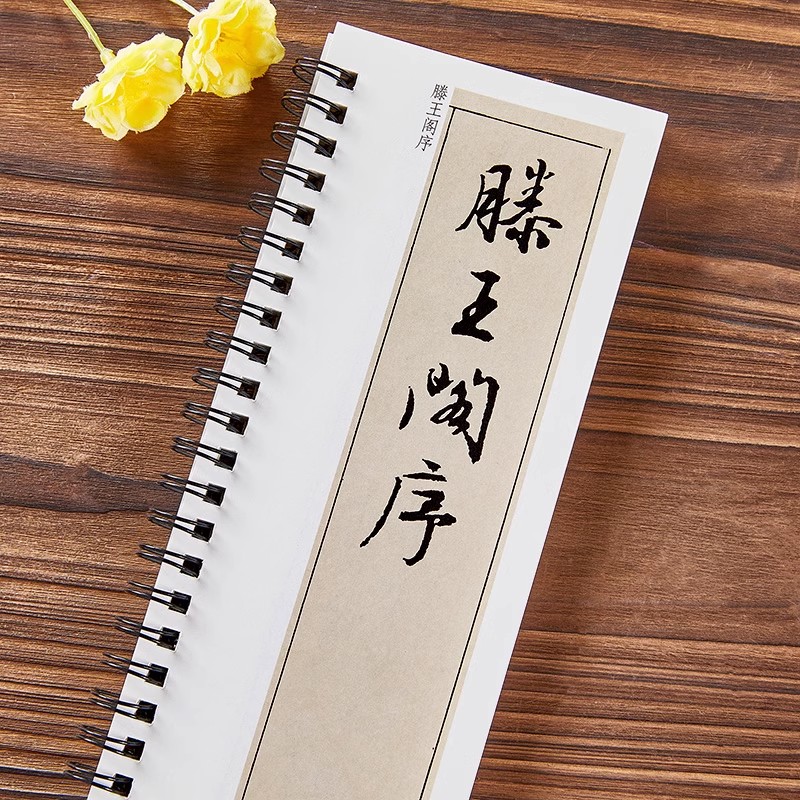 滕王阁序
滕王閣序